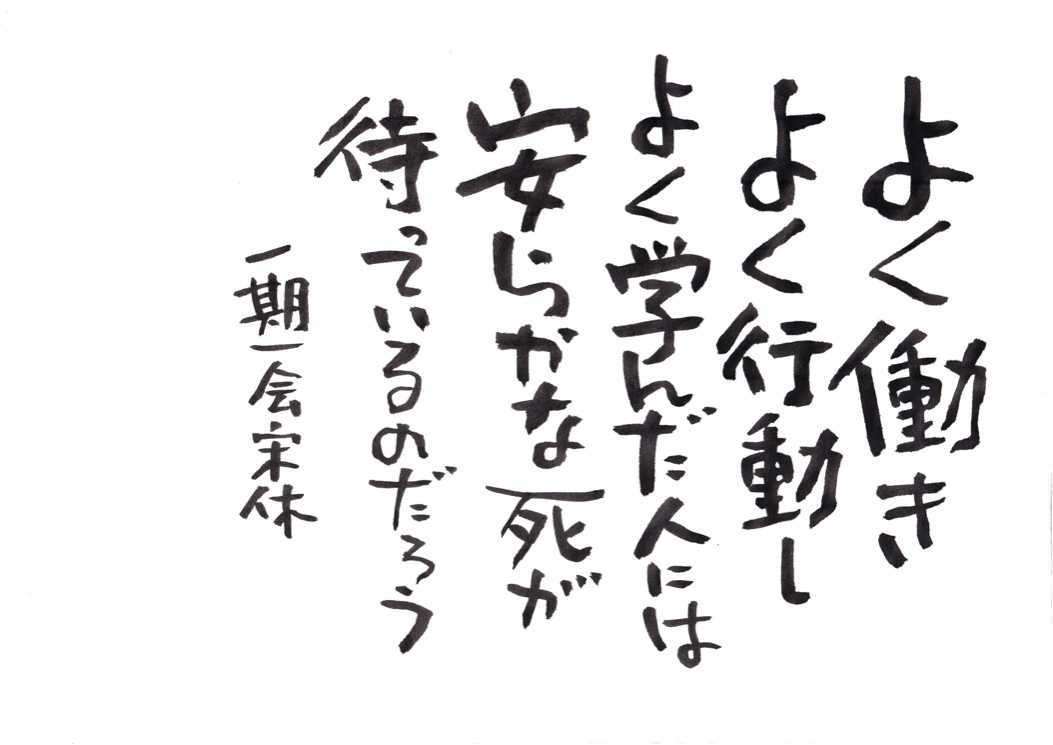 よく働き
よく行動し
よく学んだ人には
安らかな死が
待っているのだろう
一期一会宋休